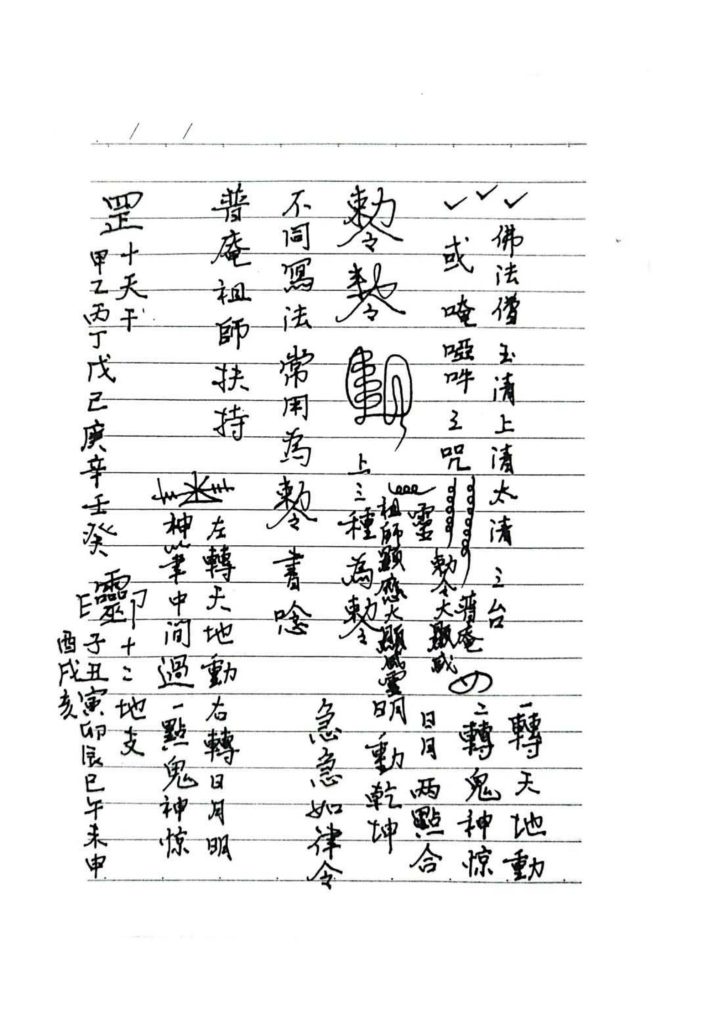 佛法僧玉清上清太清三台
或唵啞吽三咒
普庵
勅令大顯威
靈
祖師顯應大顯威靈
一轉天地動
二轉鬼神惊
日月两點合
明動乾坤
勅令
上三種為勅令
急急如律令
不同寫法常用為勅令書唸
普庵祖師扶持
左轉天地動右轉日月明
神筆中間過一點鬼神惊
罡十天干
甲乙丙丁戊己庚辛壬癸
靈印十二地支
子丑寅卯辰巳午未申
酉戌亥